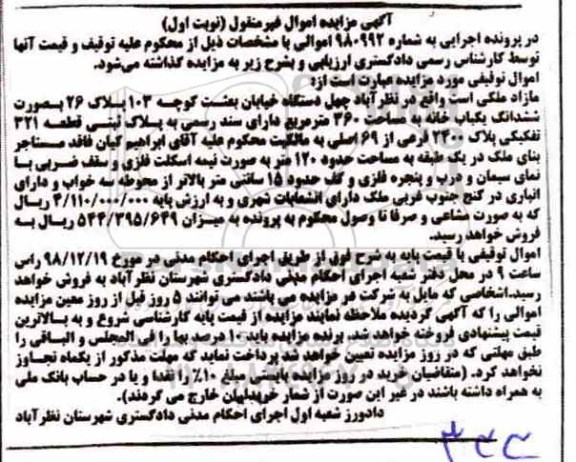 آگهی مزایده اموال غیرمنقول (نوبت اول)
در پرونده اجرایی به شماره ۹۸۰۹۹۲ اموالی با مشخصات ذیل از محکوم علیه توقیف و قیمت آنها
توسط کارشناس رسمی دادگستری ارزیابی و بشرح زیر به مزایده گذاشته می‌شود.
اموال توقیفی مورد مزایده عبارت است از:
مازاد ملکی است واقع در نظرآباد چهل دستگاه خیابان بعثت کوچه ۱۰۳ پلاک ۲۶ بصورت
ششدانگ یکباب خانه به مساحت ۳۶۰ مترمربع دارای سند رسمی به پلاک ثبتی قطعه ۳۲۱
تفکیکی پلاک ۲۴۰۰ فرعی از ۶۹ اصلی به مالکیت محکوم علیه آقای ابراهیم کیان فاقد مستاجر
بنای ملک در یک طبقه به مساحت حدود ۱۲۰ متر به صورت نیمه اسکلت فلزی و سقف ضربی با
نمای سیمان و درب و پنجره فلزی و کف حدود ۱۵ سانتی متر بالاتر از محوطه سه خواب و دارای
انباری در کنج جنوب غربی ملک دارای انشعابات شهری و به ارزش پایه ۴/۱۱۰/۰۰۰/۰۰۰ ریال
که به صورت مشاعی و صرفا تا وصول محکوم به پرونده به میزان ۵۴۴/۳۹۵/۶۴۹ ریال به
فروش خواهد رسید.
اموال توقیفی با قیمت پایه به شرح فوق از طریق اجرای احکام مدنی در مورخ ۹۸/۱۲/۱۹ راس
ساعت ۹ در محل دفتر شعبه اجرای احکام مدنی دادگستری شهرستان نظرآباد به فروش خواهد
رسید.اشخاصی که مایل به شرکت در مزایده می باشند می توانند ۵ روز قبل از روز معین مزایده
اموالی را که آگهی گردیده ملاحظه نمایند مزایده از قیمت پایه کارشناسی شروع و به بالاترین
قیمت پیشنهادی فروخته خواهد شد. برنده مزایده باید ۱۰ درصد بها را فی المجلس و الباقی را
طبق مهلتی که در روز مزایده تعیین خواهد شد پرداخت نماید که مهلت مذکور از یکماه تجاوز
نخواهد کرد. (متقاضیان خرید در روز مزایده بایستی مبلغ ۱۰٪ را نقدا و یا در حساب بانک ملی
به همراه داشته باشند در غیر این صورت از شمار خریداران خارج می گردند).
دادورز شعبه اول اجرای احکام مدنی دادگستری شهرستان نظرآباد